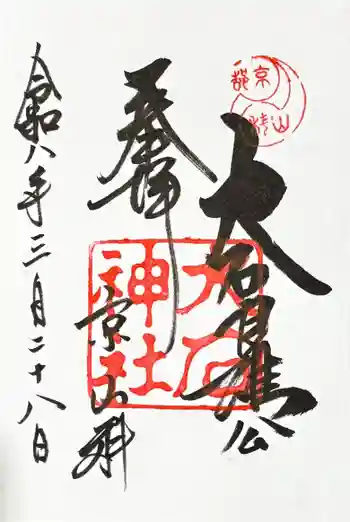 大石良雄公
奉拝
京山科
令和八年三月二十八日
京都
山科
大石
神社